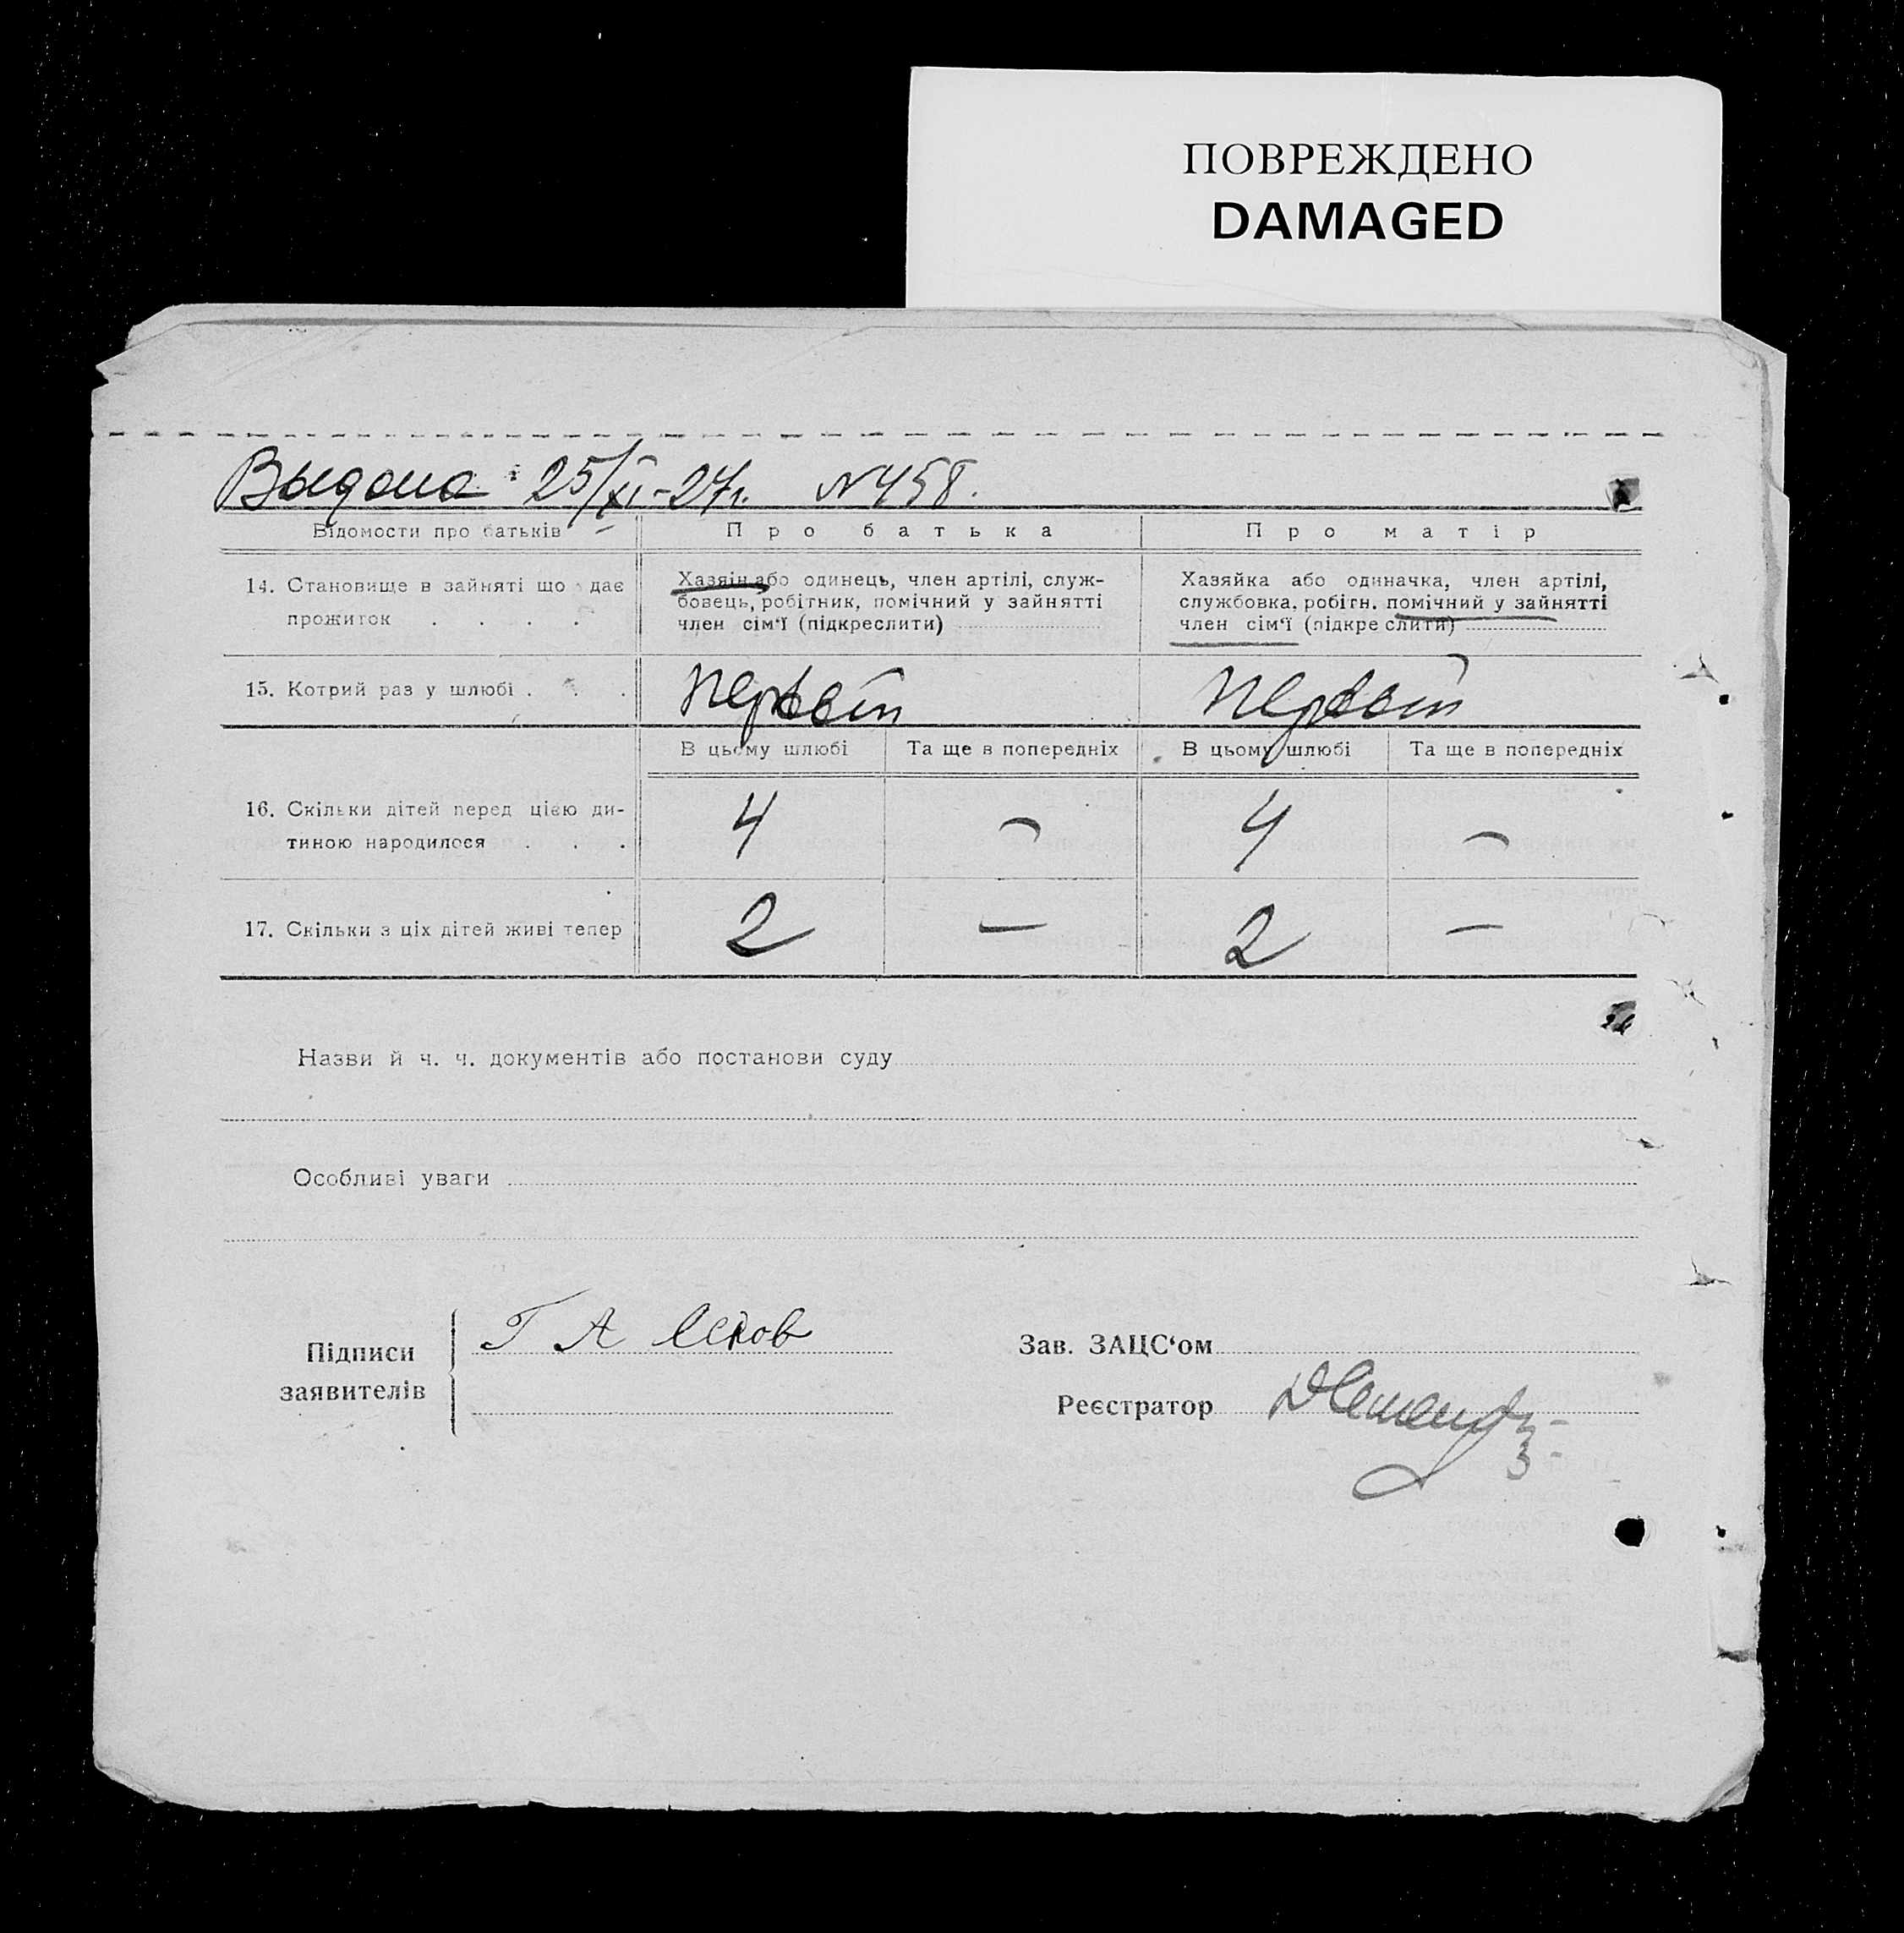 ПОВРЕЖДЕНО
DAMAGED
Выдана 25/XI-27г. N 458.
Відомости про батьків
Про батька
Про матір
14. Становище в зайняті що дає
прожиток . . . .
Хазяїн або одинець, член артілі, служ-
бовець, робітник, помічний у зайнятті
член сім‘ї (підкреслити)
Хазяйка або одиначка, член артілі,
службовка, робітн. помічний у зайнятті
член сім‘ї (підкреслити)
15. Котрий раз у шлюбі . . .
первый
первый
В цьому шлюбі
Та ще в попередніх
В цьому шлюбі
Та ще в попередніх
16. Скільки дітей перед цією ди-
тиною народилося . . .
4 — 4 —
17. Скільки з ціх дітей живі тепер
2 — 2 —
Назви й ч. ч. документів або постанови суду
Особливі уваги
Підписи
заявителів
Г А
Зав. ЗАЦС‘ом
Реєстратор